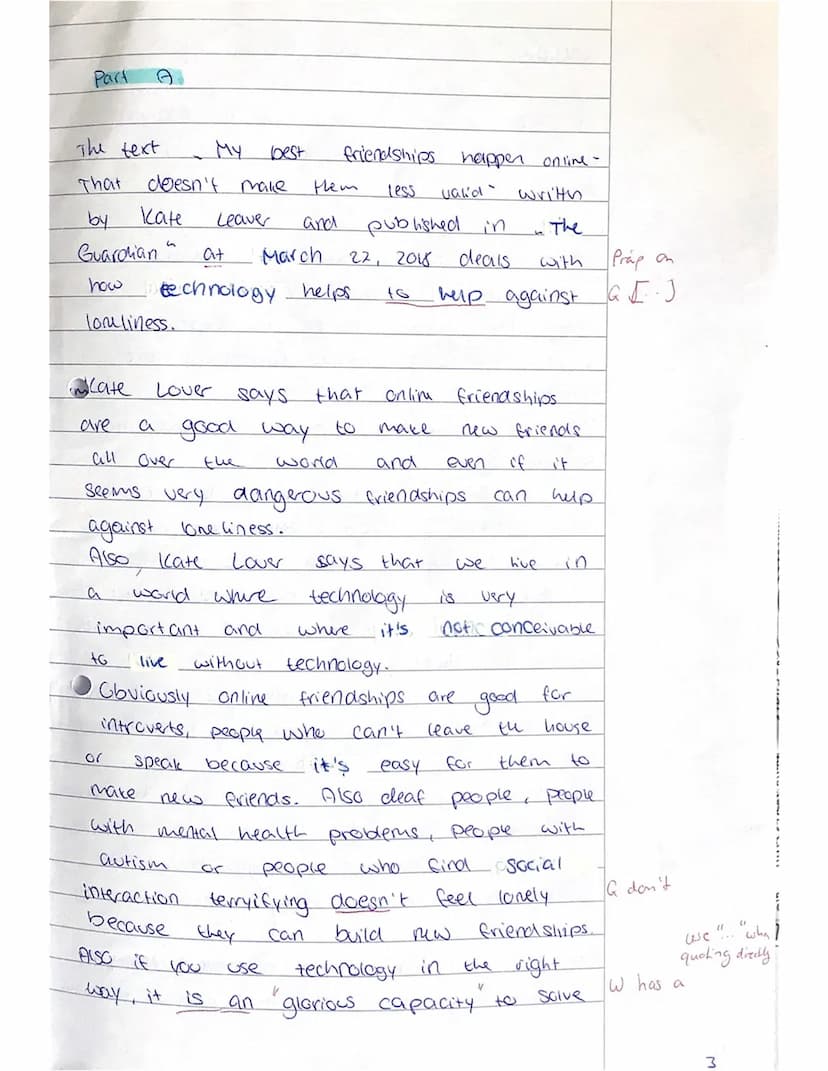 Part A
The text „My best friendships happen online -
That doesn't make them less valid" written
by Kate Leaver and published in „The
Guardian" at March 22, 2018 deals with
Präp on
how technology helps to help against
G [...]
loneliness.
Kate Lover says that online friendships
are a good way to make new friends
all over the world and even if it
seems very dangerous friendships can help
against loneliness.
Also, Kate Lover says that we live in
a world where technology is very
important and where it's not conceivable
to live without technology.
Obviously online friendships are good for
introverts, people who can't leave the house
or speak because it's easy for them to
make new friends. Also deaf people, people
with mental health problems, people with
autism or people who find social
interaction terryifying doesn't feel lonely
G don't
because they can build new friendships.
use "..." when
quoting directly
Also if you use technology in the right
way, it is an "glorious capacity" to solve
W has a
3